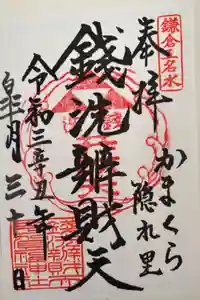 鎌倉五名水
奉拝
かまくら
隠れ里
銭洗辨財天
令和三辛丑年
皐月三十日